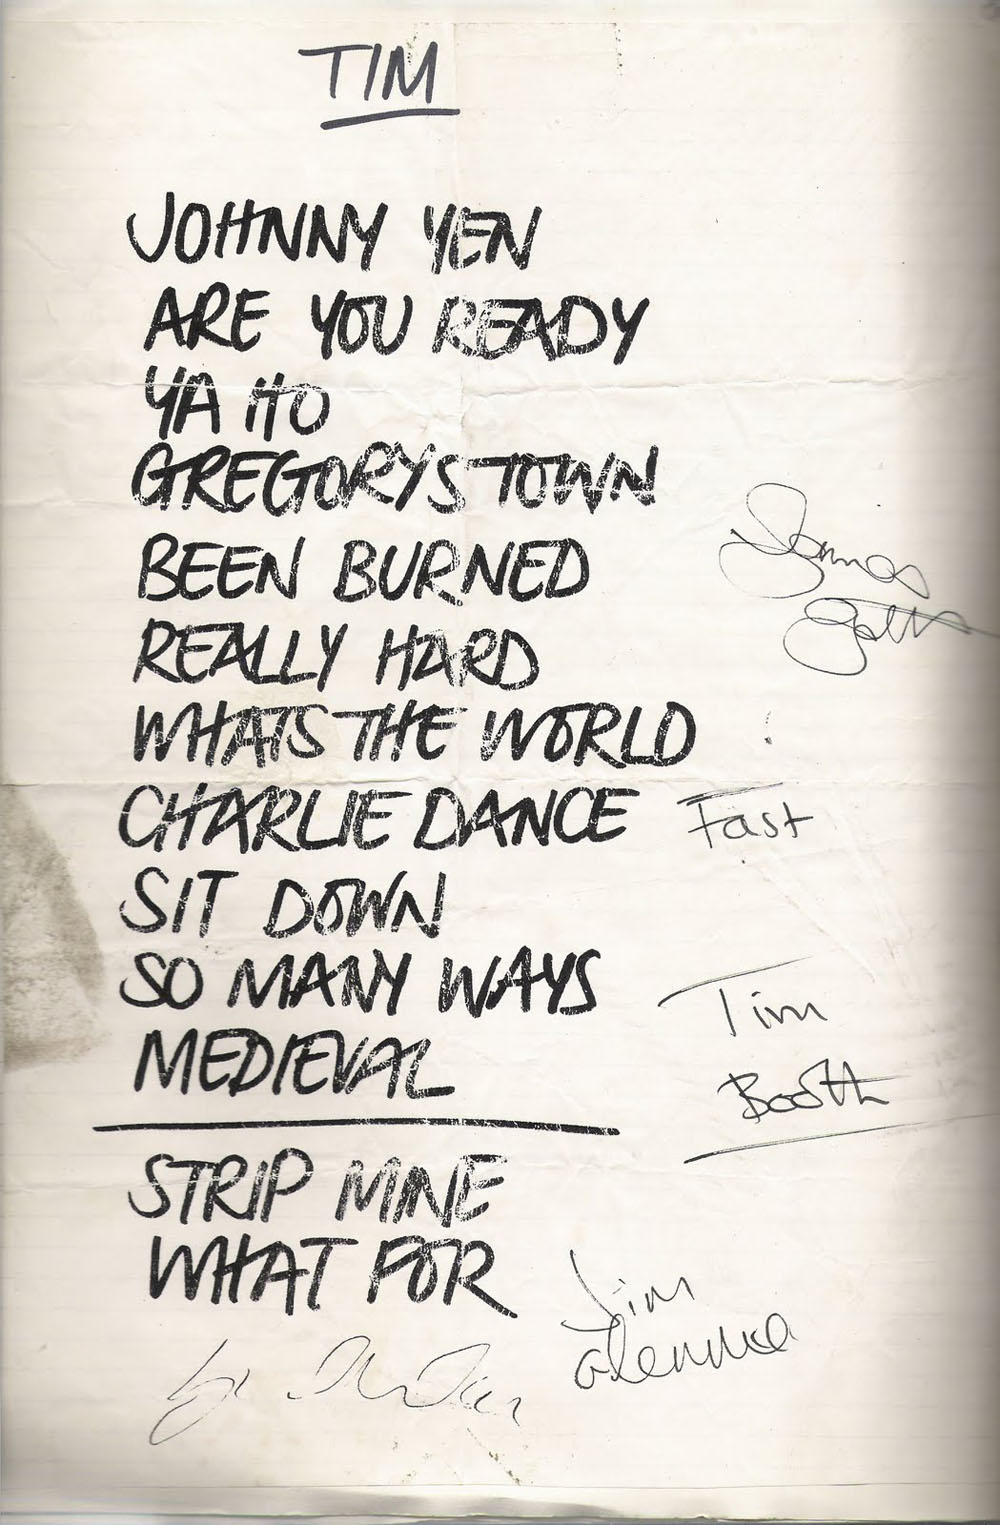 TIM
JOHNNY YEN
ARE YOU READY
YA HO
GREGORYS TOWN
BEEN BURNED
James
REALLY HARD
WHATS THE WORLD
CHARLIE DANCE Fast
SIT DOWN
SO MANY WAYS
Tim
MEDIEVAL
Booth
STRIP MINE
WHAT FOR
Jim
Glennie